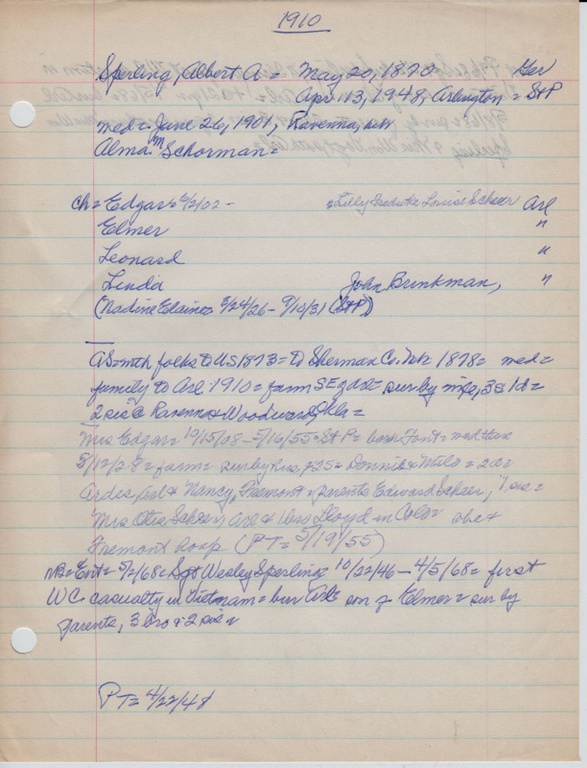 1910
Sperling, Albert A = May 20, 1870 Ger
Apr 13, 1948, Arlington = StP
med = June 26, 1901, Ravenna, Neb
Alma M Schorman =
Ch = Edgar = 02 - = Lilly Louise Scheer Arl
Elmer "
Leonard "
Linda John Brinkman, "
(Nadine Elaine 3/24/26 - 9/10/31 (StP)
AS = with folks to US 1873 = to Sherman Co. Neb 1878 = med =
family to Arl 1910 = farm SE of Arl = sur by wife, 3s 1d =
2 sis @ Ravenna & Woodward, Okla =
Mrs Edgar = 10/15/08 - 5/16/55 = StP = born Font = med
8/12/28 = farm = sur by hus, = Donnie & = 2d =
& Nancy, Fremont = parents Edward Scheer, sis =
Mrs Otis Scheer, Arl & Lloyd in Colo =
Fremont hosp (PT = 5/19/55)
Ent = 5/2/68 = Sgt Wesley Sperling 10/22/46 - 4/5/68 = first
WC casualty in Vietnam = bur Arl = son of Elmer = sur by
parents, 3 bro & 2 sis =
PT = 4/22/48